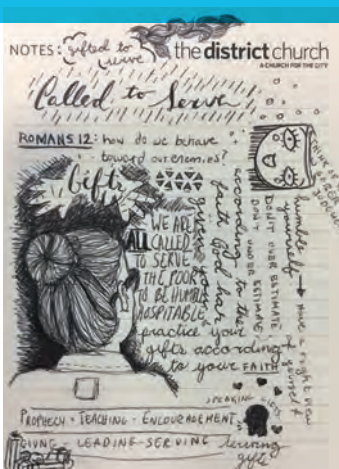 NOTES: gifted to serve
the district church
A CHURCH FOR THE CITY
Called to Serve
ROMANS 12: how do we behave
toward our enemies?
Gifts
WE ARE
ALL CALLED
TO SERVE
THE POOR
TO BE HUMBLE
HOSPITABLE
practice your
gifts according
to your FAITH
according to the
faith God has
given you
DON'T OVER ESTIMATE
DON'T UNDER ESTIMATE
humble
yourself → have a right view
of yourself
THINK OF
SPEAKING GIFTS
PROPHECY - TEACHING - ENCOURAGEMENT
GIVING - LEADING - SERVING
serving
gifts